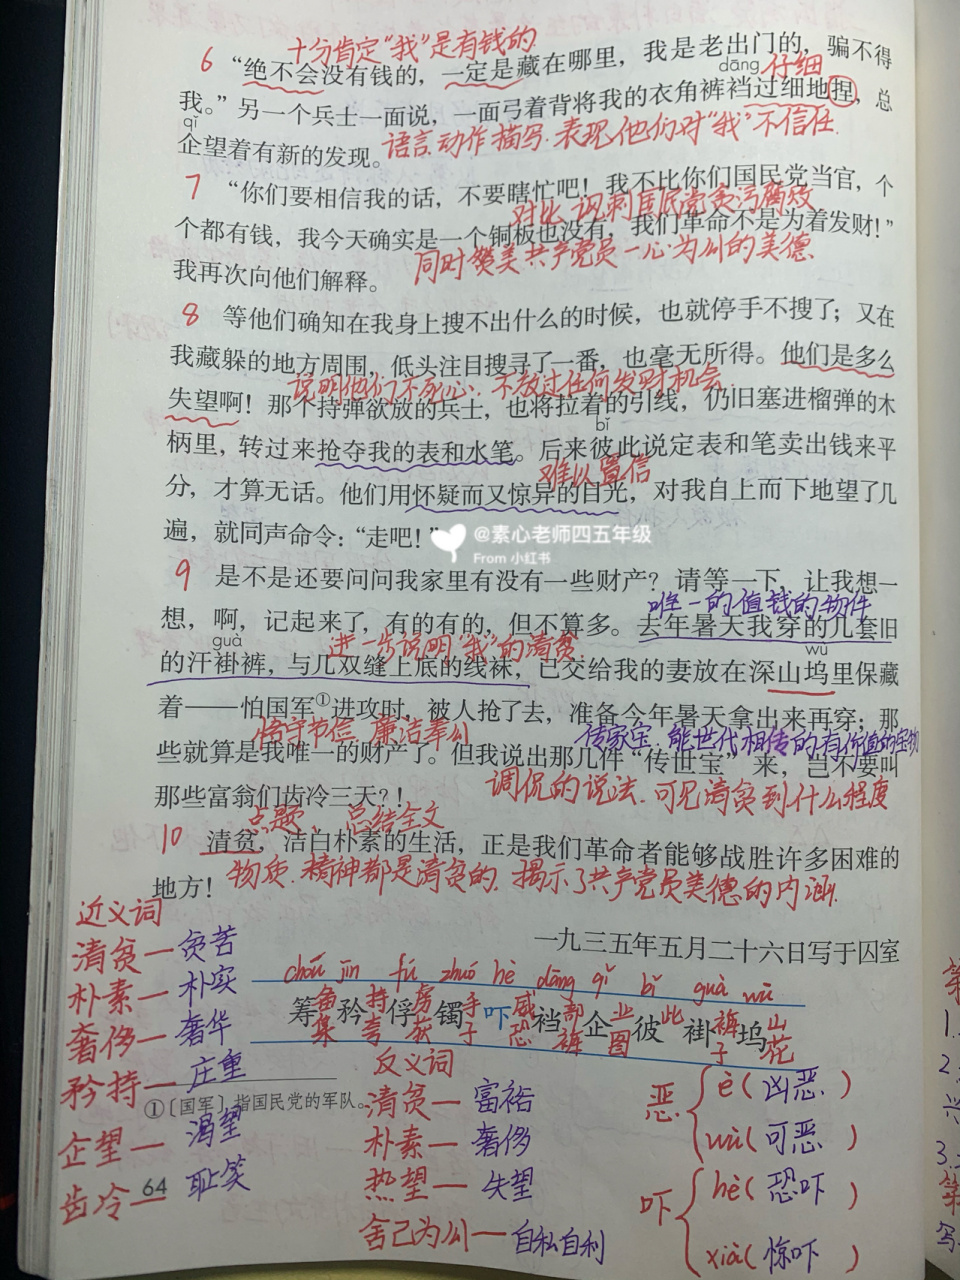 十分肯定“我”是有钱的
6 “绝不会没有钱的，一定是藏在哪里，我是老出门的，骗不得
dāng 仔细
我。”另一个兵士一面说，一面弓着背将我的衣角裤裆过细地捏，总
qǐ
语言动作描写.表现他们对“我”不信任.
企望着有新的发现。
7 “你们要相信我的话，不要瞎忙吧！我不比你们国民党当官，个
对比 讽刺国民党贪污腐败
个都有钱，我今天确实是一个铜板也没有，我们革命不是为着发财！”
同时赞美共产党员一心为公的美德
我再次向他们解释。
8 等他们确知在我身上搜不出什么的时候，也就停手不搜了；又在
我藏躲的地方周围，低头注目搜寻了一番，也毫无所得。他们是多么
说明他们不死心：不放过任何发财机会.
失望啊！那个持弹欲放的兵士，也将拉着的引线，仍旧塞进榴弹的木
bǐ
柄里，转过来抢夺我的表和水笔。后来彼此说定表和笔卖出钱来平
难以置信
分，才算无话。他们用怀疑而又惊异的目光，对我自上而下地望了几
遍，就同声命令：“走吧！”
@素心老师四五年级
From 小红书
9 是不是还要问问我家里有没有一些财产？请等一下，让我想一
唯一的值钱的物件
想，啊，记起来了，有的有的，但不算多。去年暑天我穿的几套旧
guà 进一步说明“我”的清贫 wù
的汗褂裤，与几双缝上底的线袜，已交给我的妻放在深山坞里保藏
着——怕国军①进攻时，被人抢了去，准备今年暑天拿出来再穿；那
恪守节俭 廉洁奉公 传家宝.能世代相传的有价值的宝物
些就算是我唯一的财产了。但我说出那几件“传世宝”来，岂不要叫
调侃的说法.可见清贫到什么程度
那些富翁们齿冷三天？！
点题、总结全文
10 清贫，洁白朴素的生活，正是我们革命者能够战胜许多困难的
物质.精神都是清贫的.揭示了共产党员美德的内涵.
地方！
一九三五年五月二十六日写于囚室
近义词
清贫—贫苦
朴素—朴实
奢侈—奢华
矜持—庄重
企望—渴望
齿冷—耻笑
chóu jīn fú zhuó hè dāng qǐ bǐ guà wù
筹备 筹集 矜持 矜夸 俘虏 俘获 镯手 镯子 吓威 吓恐 裆部 裆裤 企业 企图 彼此 褂裤 褂子 坞山 坞花
①〔国军〕指国民党的军队。
反义词
清贫—富裕
朴素—奢侈
热望—失望
舍己为公—自私自利
恶
è（凶恶）
wù（可恶）
吓
hè（恐吓）
xià（惊吓）
64